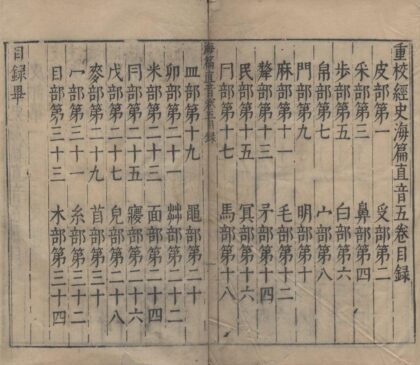 重校經史海篇直音五卷目錄
皮部第一 受部第二
釆部第三 鼻部第四
歩部第五 白部第六
帛部第七 宀部第八
門部第九 明部第十
麻部第十一 毛部第十二
犛部第十三 矛部第十四
民部第十五 冥部第十六
部第十七 馬部第十八
海篇直音 錄
皿部第十九 黽部第二十
卯部第二十一 茻部第二十二
米部第二十三 面部第二十四
部第二十五 部第二十六
戊部第二十七 皃部第二十八
麥部第二十九 首部第三十
部第三十一 糸部第三十二
目部第三十三 木部第三十四
目錄畢